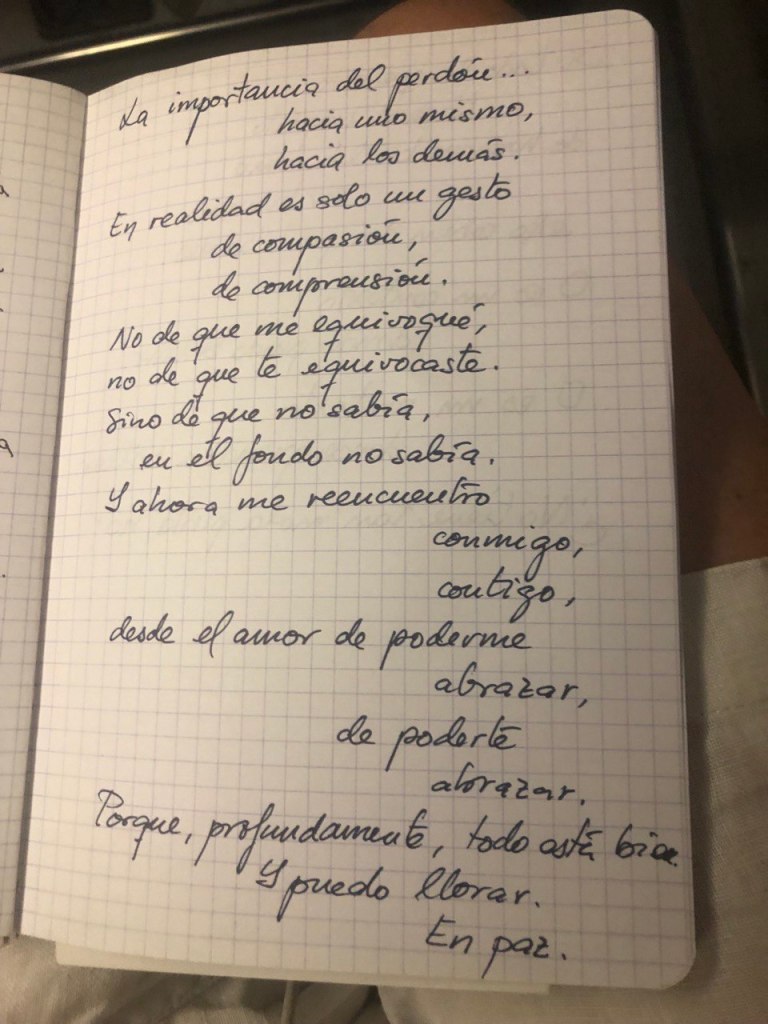 La importancia del perdón...
hacia uno mismo,
hacia los demás.
En realidad es solo un gesto
de compasión,
de comprensión.
No de que me equivoqué,
no de que te equivocaste.
Sino de que no sabía,
en el fondo no sabía.
Y ahora me reencuentro
conmigo,
contigo,
desde el amor de poderme
abrazar,
de poderte
abrazar.
Porque, profundamente, todo está bien.
Y puedo llorar.
En paz.